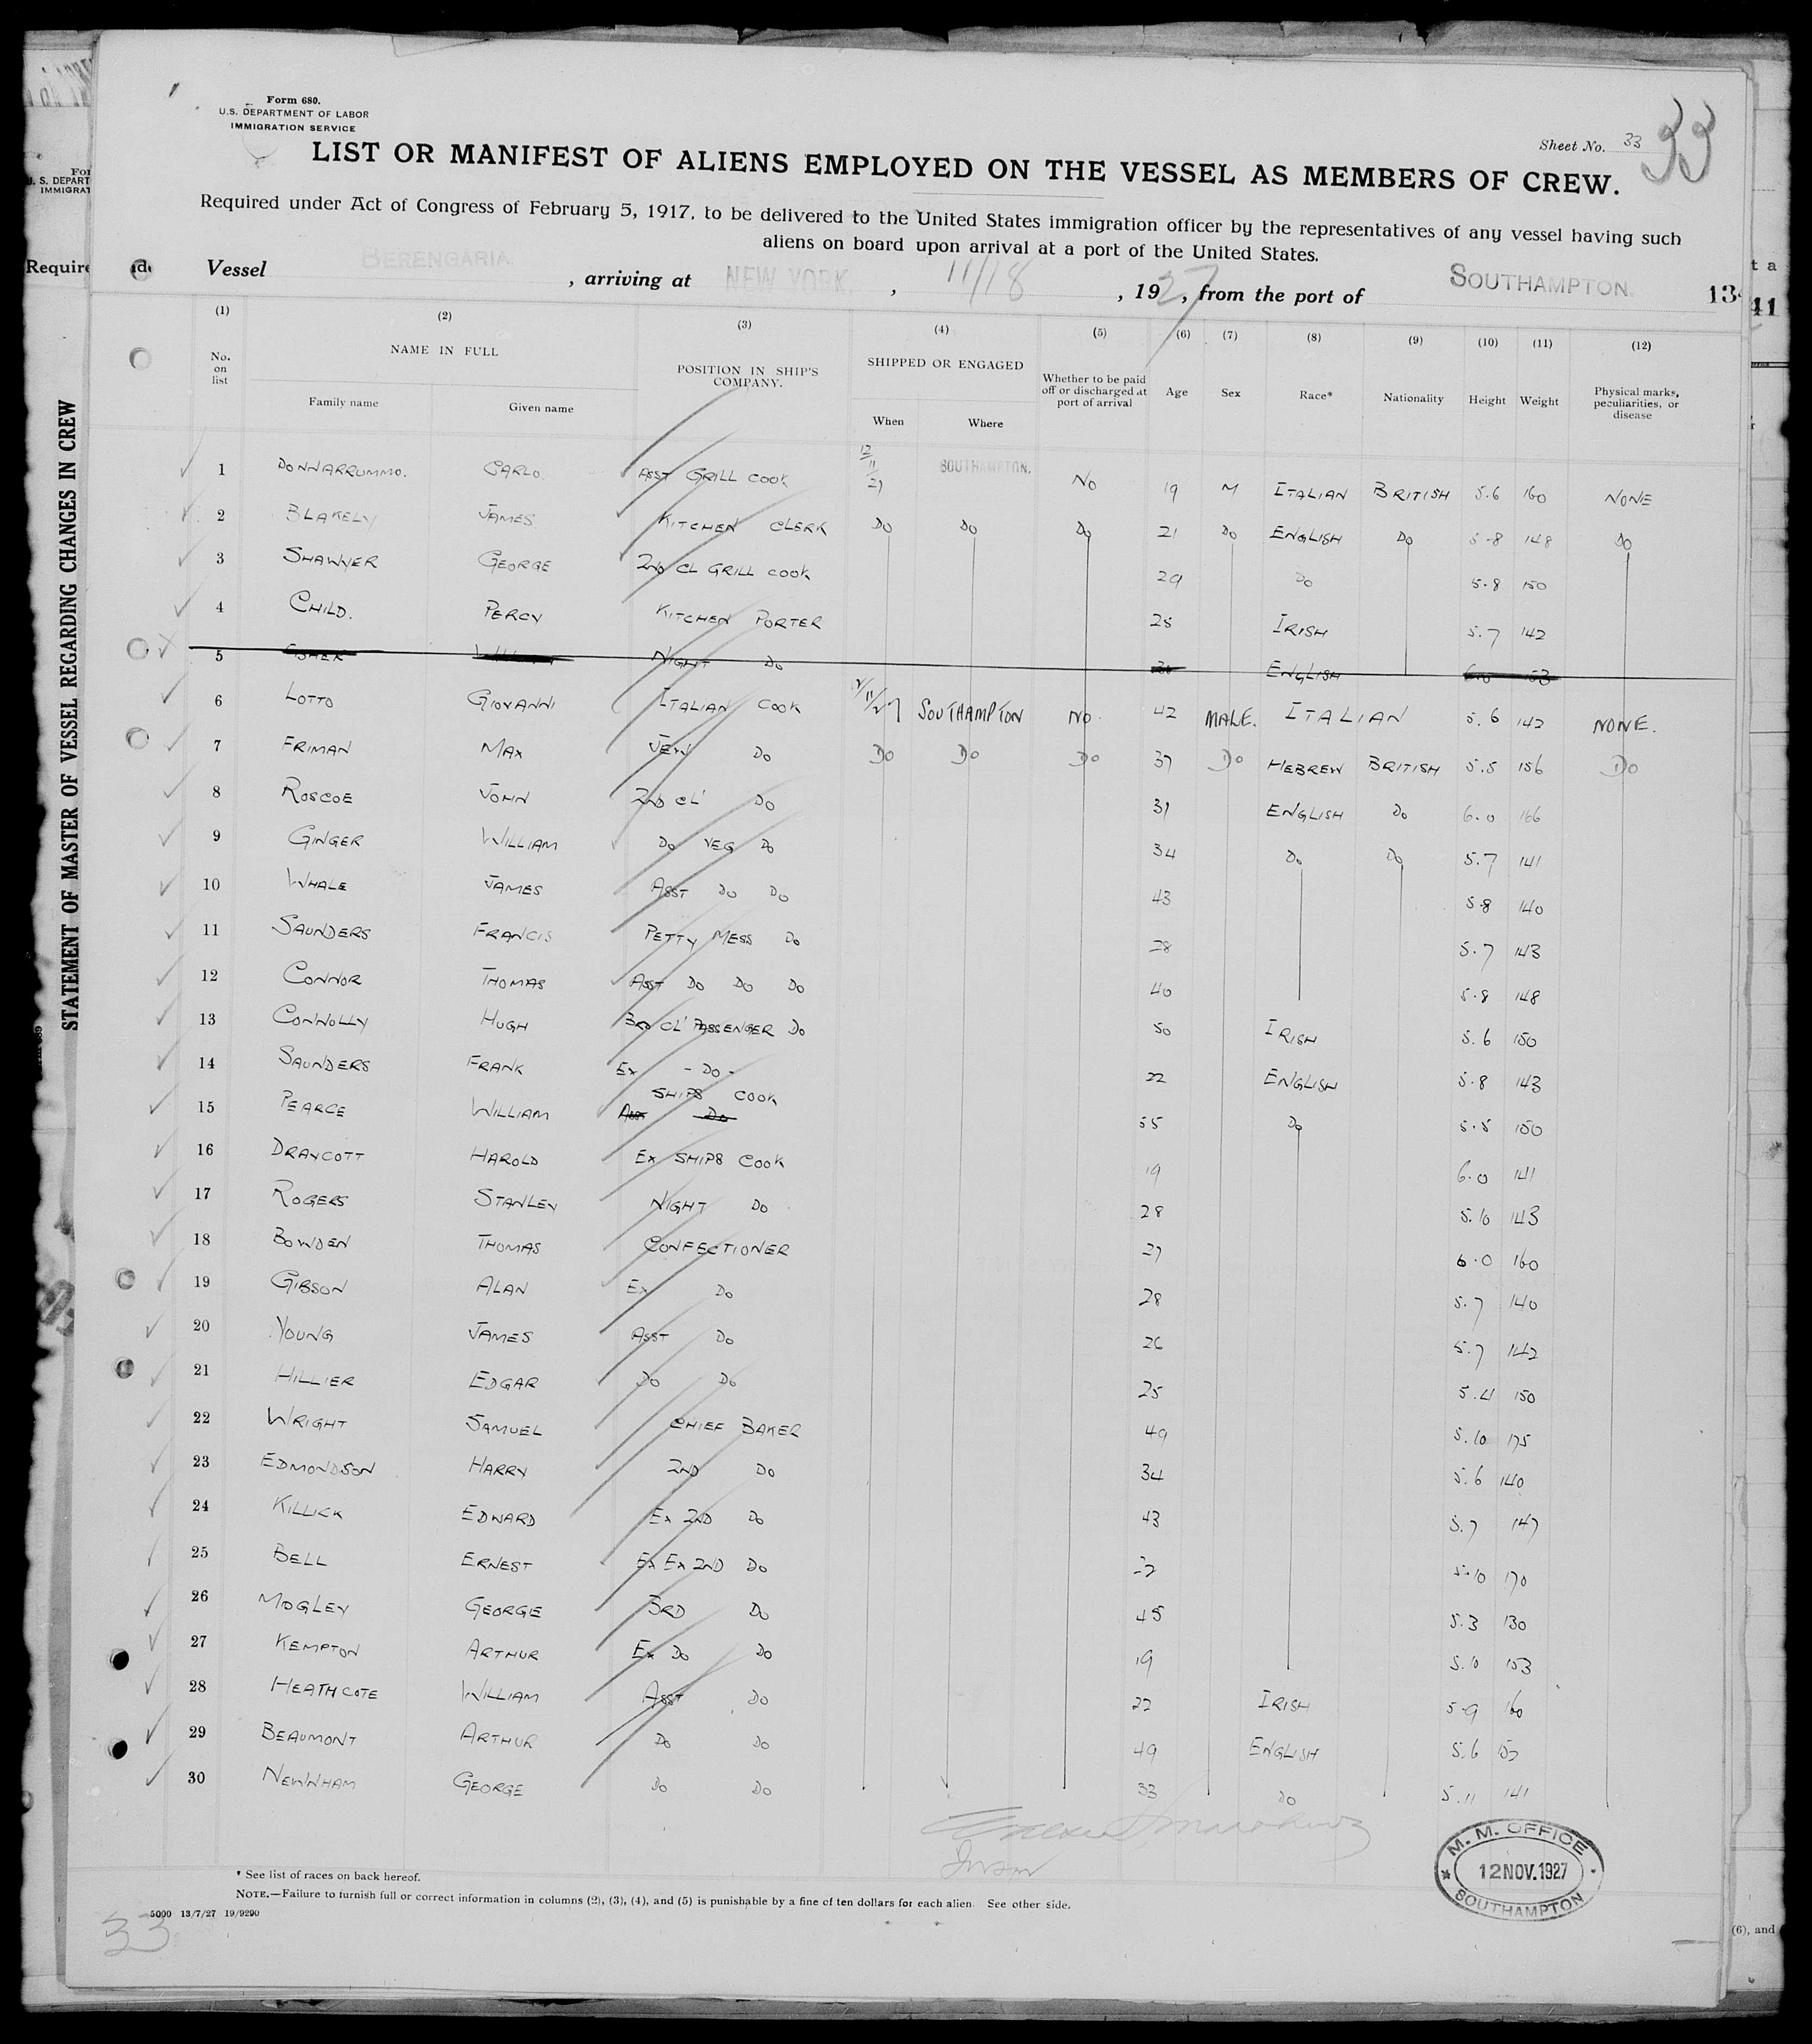 Form 680.
U.S. DEPARTMENT OF LABOR
IMMIGRATION SERVICE
Sheet No. 33
33
LIST OR MANIFEST OF ALIENS EMPLOYED ON THE VESSEL AS MEMBERS OF CREW.
Required under Act of Congress of February 5, 1917, to be delivered to the United States immigration officer by the representatives of any vessel having such
aliens on board upon arrival at a port of the United States.
Vessel BERENGARIA. , arriving at NEW YORK. , 11/18 , 1927, from the port of SOUTHAMPTON.
(1) (2) (3) (4) (5) (6) (7) (8) (9) (10) (11) (12)
No. on list NAME IN FULL Family name Given name POSITION IN SHIP'S COMPANY. SHIPPED OR ENGAGED When Where Whether to be paid off or discharged at port of arrival Age Sex Race* Nationality Height Weight Physical marks, peculiarities, or disease
1 DONNARRUMMO. CARLO. ASST GRILL COOK 12/11/27 SOUTHAMPTON. NO 19 M ITALIAN BRITISH 5.6 160 NONE
2 BLAKELY JAMES KITCHEN CLERK DO DO DO 21 DO ENGLISH DO 5.8 148 DO
3 SHAWYER GEORGE 2ND CL GRILL COOK 29 DO 5.8 150
4 CHILD. PERCY KITCHEN PORTER 25 IRISH 5.7 142
5 NIGHT DO ENGLISH
6 LOTTO GIOVANNI ITALIAN COOK 12/11/27 SOUTHAMPTON NO. 42 MALE. ITALIAN 5.6 142 NONE.
7 FRIMAN MAX JEW DO DO DO DO 37 DO HEBREW BRITISH 5.5 156 DO
8 ROSCOE JOHN 2ND CL' DO 31 ENGLISH DO 6.0 166
9 GINGER WILLIAM DO VEG DO 34 DO DO 5.7 141
10 WHALE JAMES ASST DO DO 43 5.8 140
11 SAUNDERS FRANCIS PETTY MESS DO 28 5.7 143
12 CONNOR THOMAS ASST DO DO DO 40 5.8 148
13 CONNOLLY HUGH 3RD CL' PASSENGER DO 50 IRISH 5.6 150
14 SAUNDERS FRANK EX - DO - 22 ENGLISH 5.8 143
SHIPS COOK
15 PEARCE WILLIAM ASST DO 55 DO 5.5 150
16 DRAYCOTT HAROLD EX SHIPS COOK 19 6.0 141
17 ROGERS STANLEY NIGHT DO 28 5.10 143
18 BOWDEN THOMAS CONFECTIONER 27 6.0 160
19 GIBSON ALAN EX DO 28 5.7 140
20 YOUNG JAMES ASST DO 26 5.7 142
21 HILLIER EDGAR DO DO 25 5.4 150
22 WRIGHT SAMUEL CHIEF BAKER 49 5.10 175
23 EDMONDSON HARRY 2ND DO 34 5.6 140
24 KILLICK EDWARD EX 2ND DO 43 5.7 147
25 BELL ERNEST EX EX 2ND DO 5.10 170
26 MOGLEY GEORGE 3RD DO 45 5.3 130
27 KEMPTON ARTHUR EX DO DO 19 5.10 153
28 HEATHCOTE WILLIAM ASST DO 22 IRISH 5.9 160
29 BEAUMONT ARTHUR DO DO 49 ENGLISH 5.6
30 NEWNHAM GEORGE DO DO 33 DO 5.11 141
M. M. OFFICE
12 NOV. 1927
SOUTHAMPTON
* See list of races on back hereof.
NOTE.—Failure to furnish full or correct information in columns (2), (3), (4), and (5) is punishable by a fine of ten dollars for each alien. See other side.
5000 13/7/27 19/9290
33
STATEMENT OF MASTER OF VESSEL REGARDING CHANGES IN CREW
(6), and